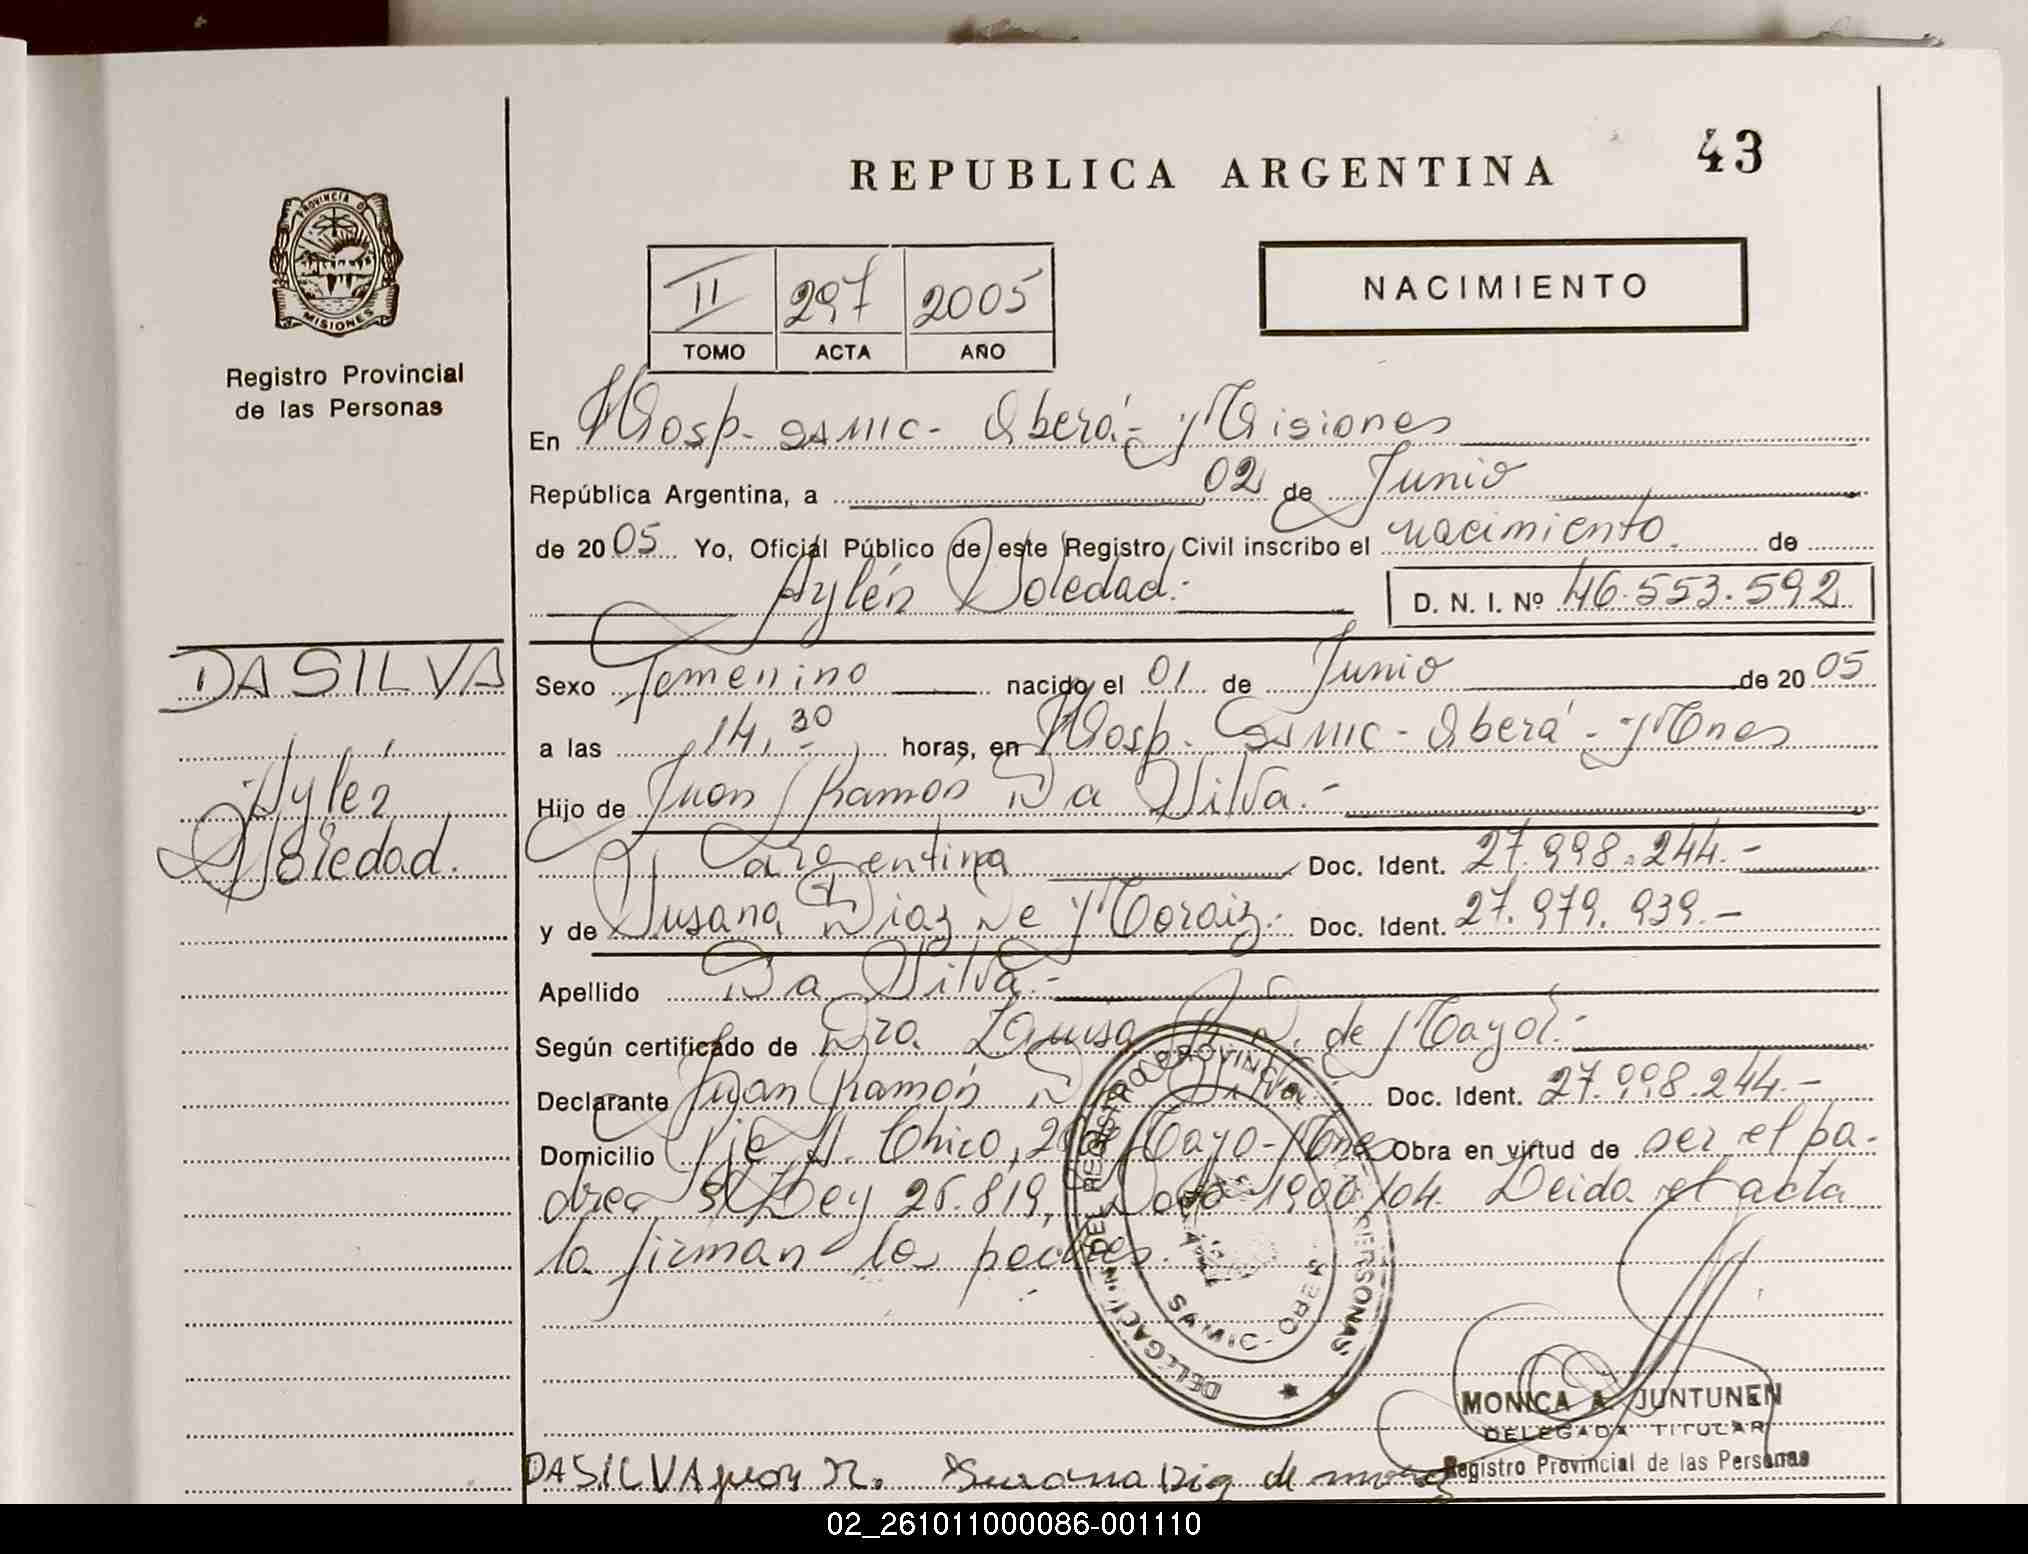 REPUBLICA ARGENTINA
43
PROVINCIA D
MISIONES
Registro Provincial
de las Personas
II 297 2005
TOMO ACTA AÑO
NACIMIENTO
En Hosp. SAMIC - Oberá - Misiones
República Argentina, a 02 de Junio
de 2005 Yo, Oficial Público de este Registro Civil inscribo el nacimiento de
Aylén Soledad.-
D. N. I. Nº 46.553.592
DA SILVA
Aylén
Soledad.
Sexo Femenino nacido el 01 de Junio de 2005
a las 14,30 horas, en Hosp. SAMIC - Oberá - Mnes
Hijo de Juan Ramón Da Silva.-
argentina Doc. Ident. 27.998.244.-
y de Susana Diaz De Moraiz.- Doc. Ident. 27.979.939.-
Apellido Da Silva.-
Según certificado de Dra. Luisa R. D. de Mayol.-
Declarante Juan Ramón D Silva Doc. Ident. 27.998.244.-
Domicilio Pje A. Chico, 25 Mayo - Mnes Obra en virtud de ser el pa-
dre S/Ley 25.819, 1900/04. Leida el acta
la firman los padres.
DELEGACION DEL REGISTRO PROVINCIAL PERSONAS
SAMIC - OBERA
MONICA A. JUNTUNEN
DELEGADA TITULAR
Registro Provincial de las Personas
DA SILVA Juan R. Susana Diaz de
02_261011000086-001110